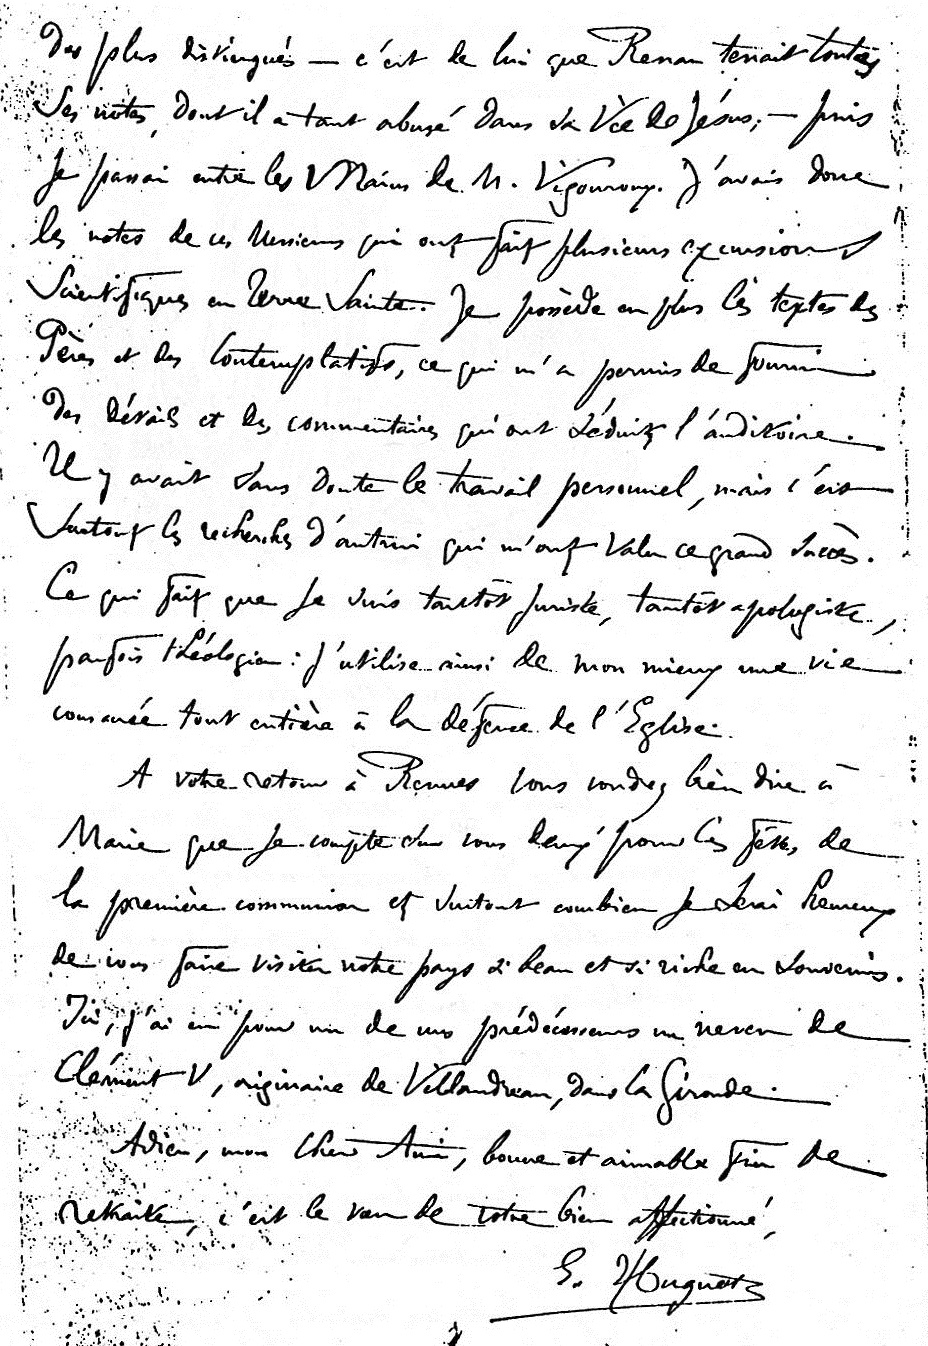 des plus distingués — c'est de lui que Renan tenait toutes
ses notes, dont il a tant abusé dans sa Vie de Jésus; — puis
je passai entre les Mains de M. Vigouroux. J'avais donc
les notes de ces Messieurs qui ont fait plusieurs excursions
Scientifiques en Terre Sainte. Je possède en plus les textes des
Pères et des Contemplatifs, ce qui m'a permis de fournir
des détails et des commentaires qui ont séduits l'auditoire.
Il y avait sans doute le travail personnel, mais c'est
surtout les recherches d'autrui qui m'ont valu ce grand succès.
Ce qui fait que je suis tantôt juriste, tantôt apologiste,
parfois théologien : j'utilise ainsi de mon mieux une vie
consacrée tout entière à la défence de l'Eglise.
A votre retour à Rennes vous voudrez bien dire à
Marie que je compte sur vous deux pour les fêtes de
la première communion et surtout combien je serai heureux
de vous faire visiter notre pays si beau et si riche en souvenirs.
Ici, j'ai eu pour un de mes prédécesseurs un neveu de
Clément V, originaire de Villandreau, dans la Gironde.
Adieu, mon cher Ami, bonne et aimable fin de
retraite, c'est le vœu de votre bien affectionné,
E. Huguet